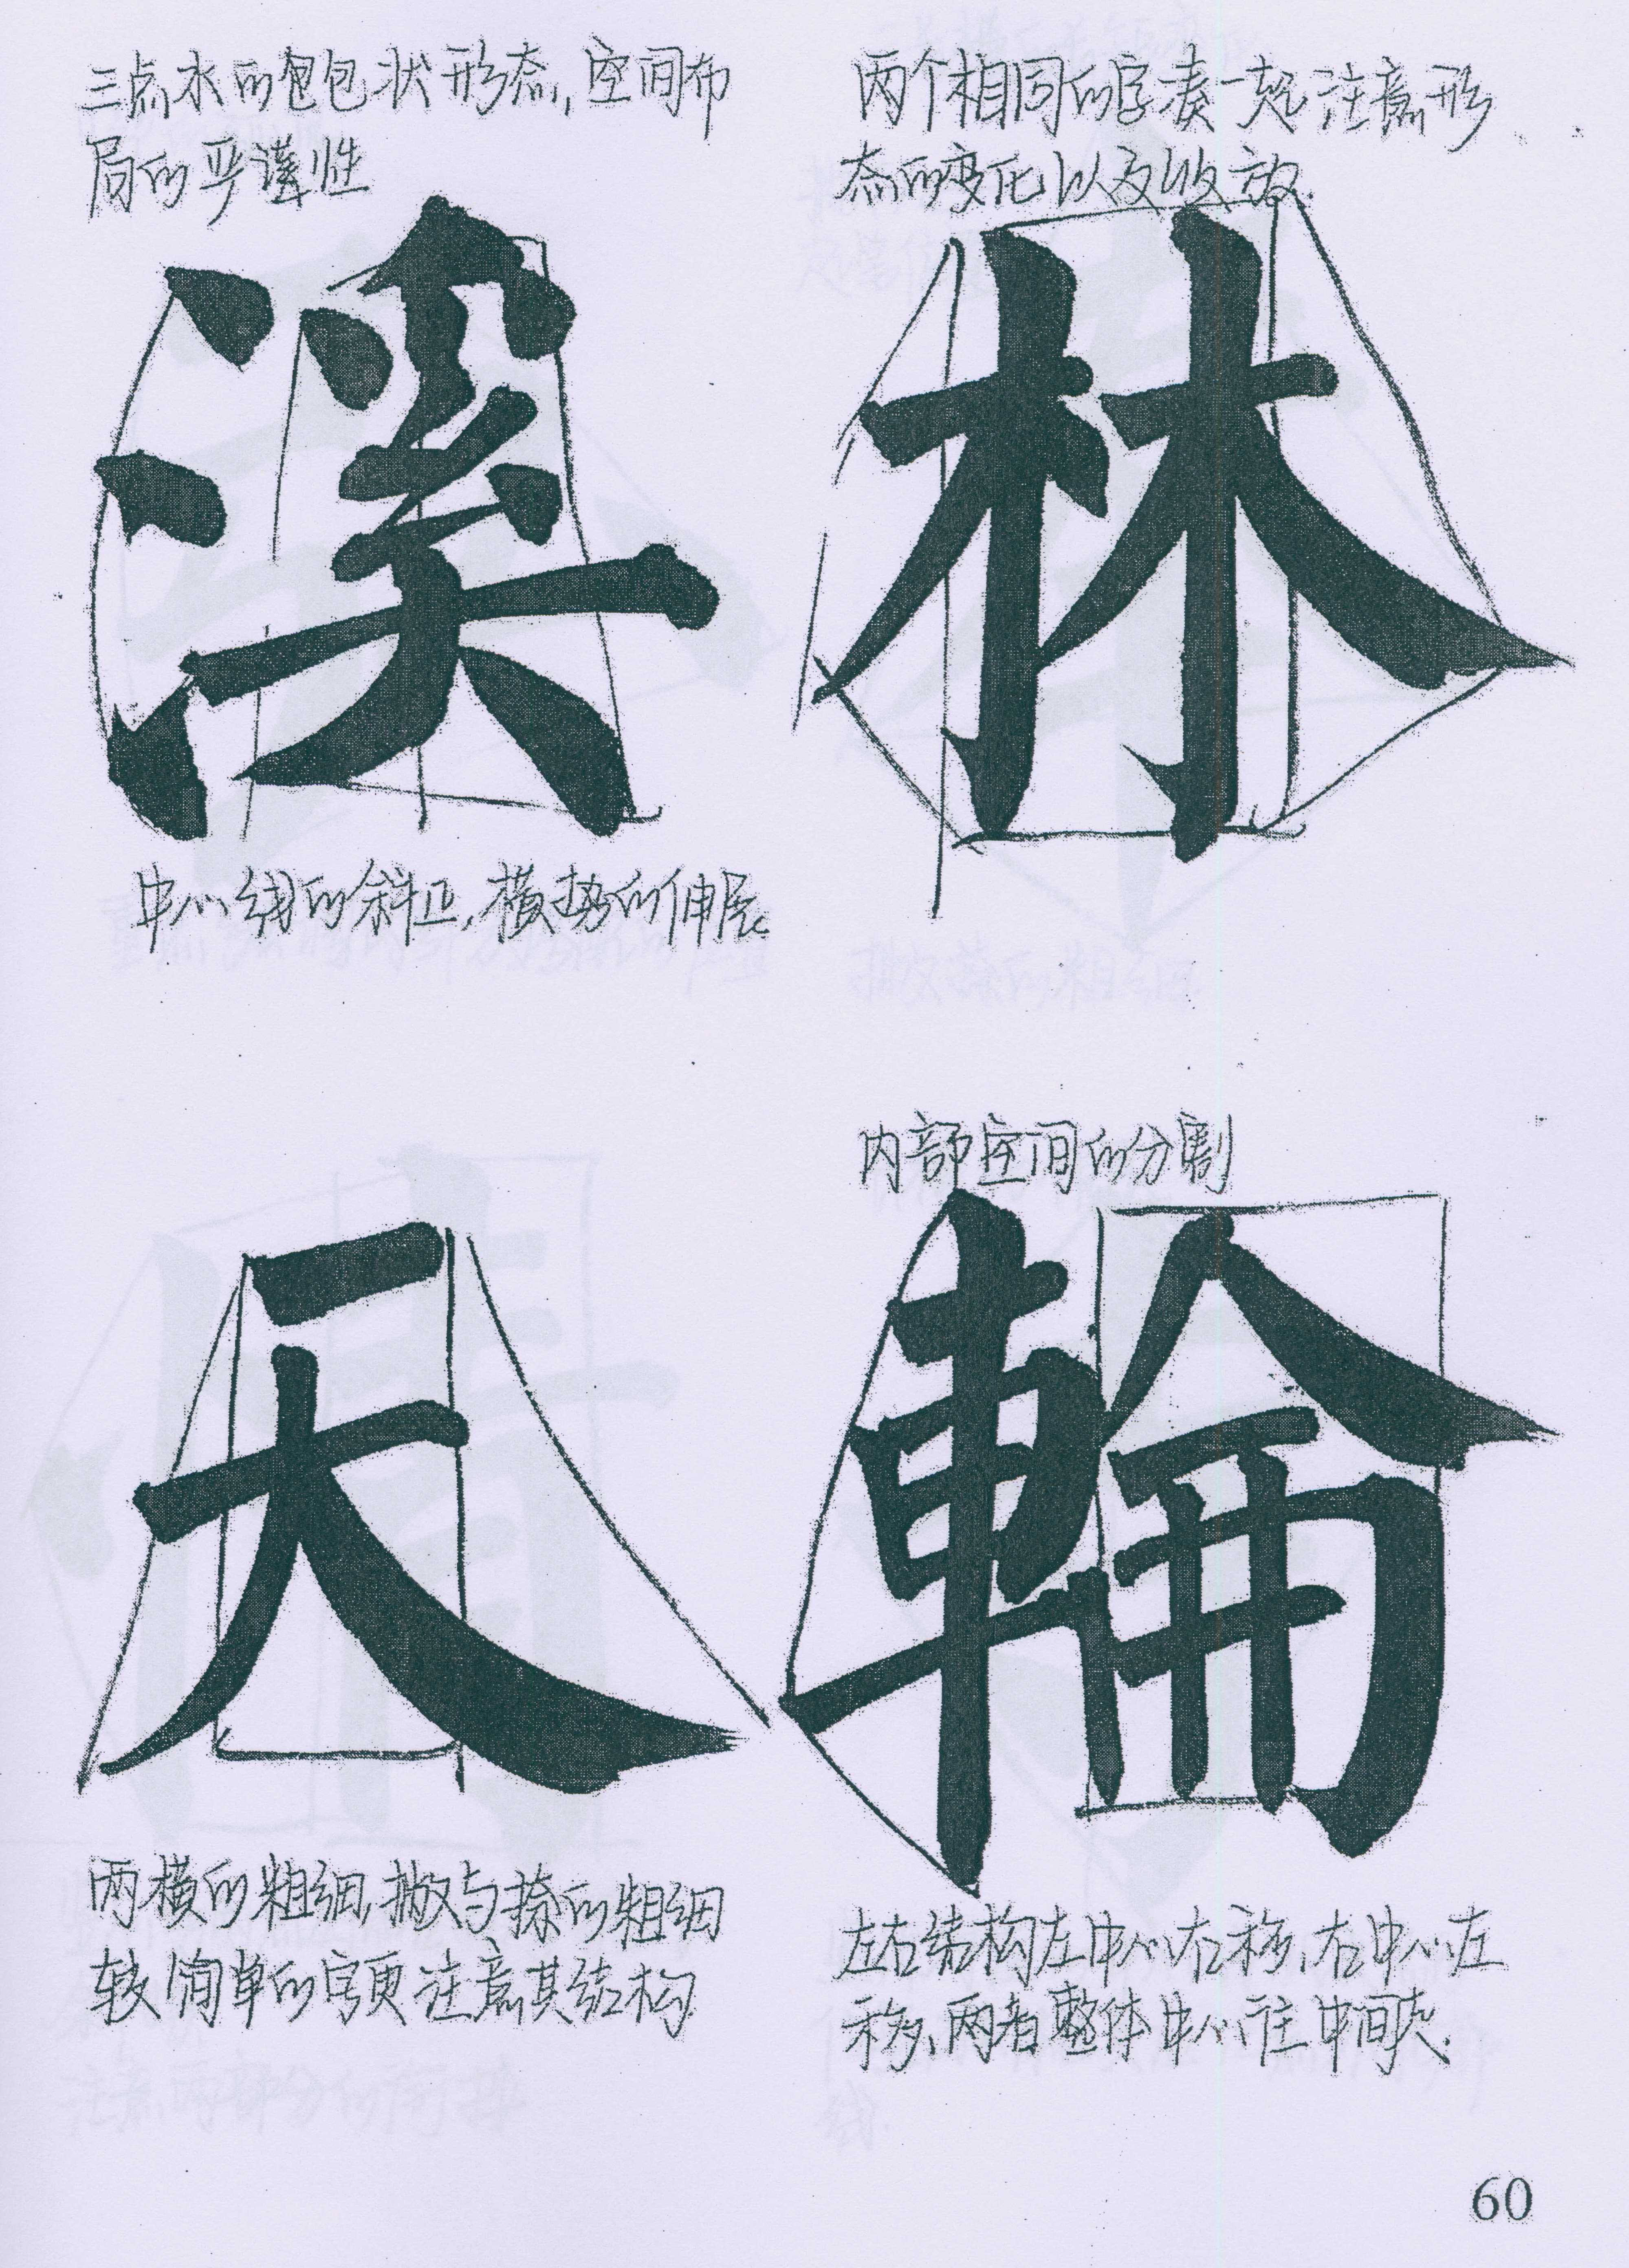 三点水的包包状形态,空间布
局的严谨性
溪
中心线的斜正,横势的伸展。
两个相同的字凑一起,注意形
态的变化以及收放.
林
天
两横的粗细,撇与捺的粗细
较简单的字更注意其结构
内部空间的分割
輪
左右结构左中心右移,右中心左
移,两者整体中心往中间夹.
60